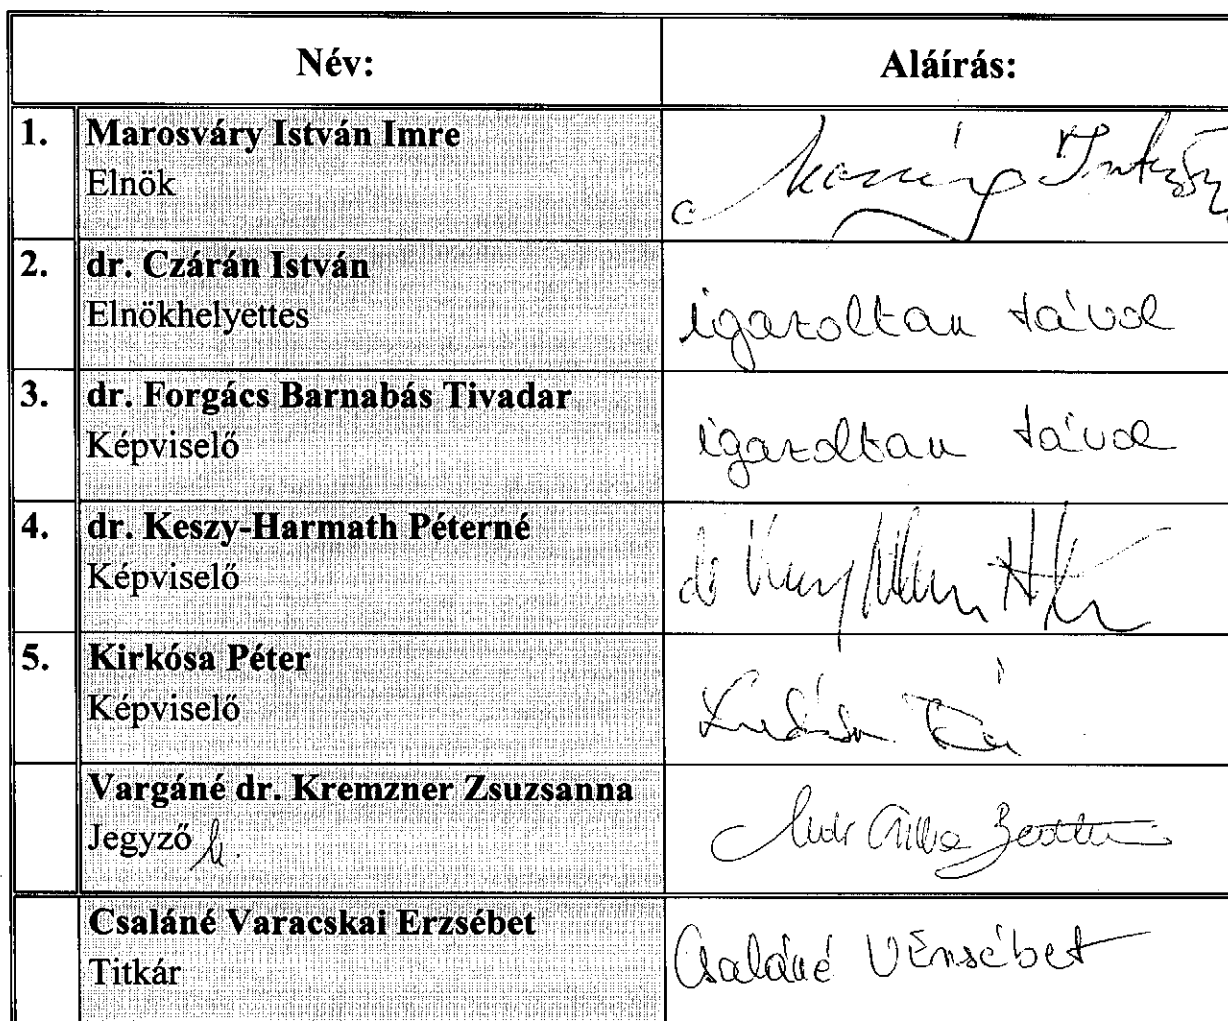 Név: Aláírás:
1. Marosváry István Imre
Elnök
2. dr. Czárán István
Elnökhelyettes igazoltan távol
3. dr. Forgács Barnabás Tivadar
Képviselő igazoltan távol
4. dr. Keszy-Harmath Péterné
Képviselő
5. Kirkósa Péter
Képviselő
Vargáné dr. Kremzner Zsuzsanna
Jegyző h.
Csaláné Varacskai Erzsébet
Titkár Csaláné VErzsébet